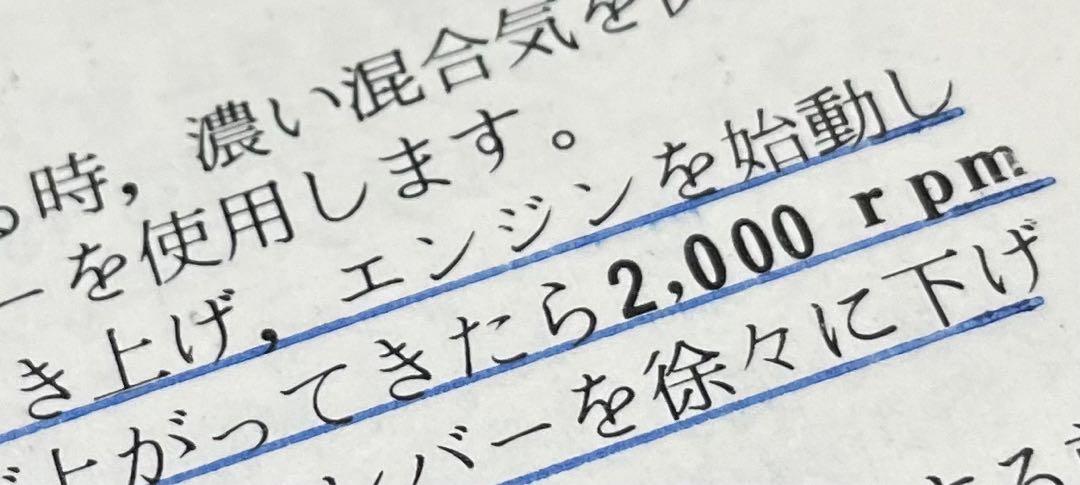 る時，濃い混合気を
ーを使用します。
き上げ，エンジンを始動し
上がってきたら2,000 rpm
バーを徐々に下げ
する